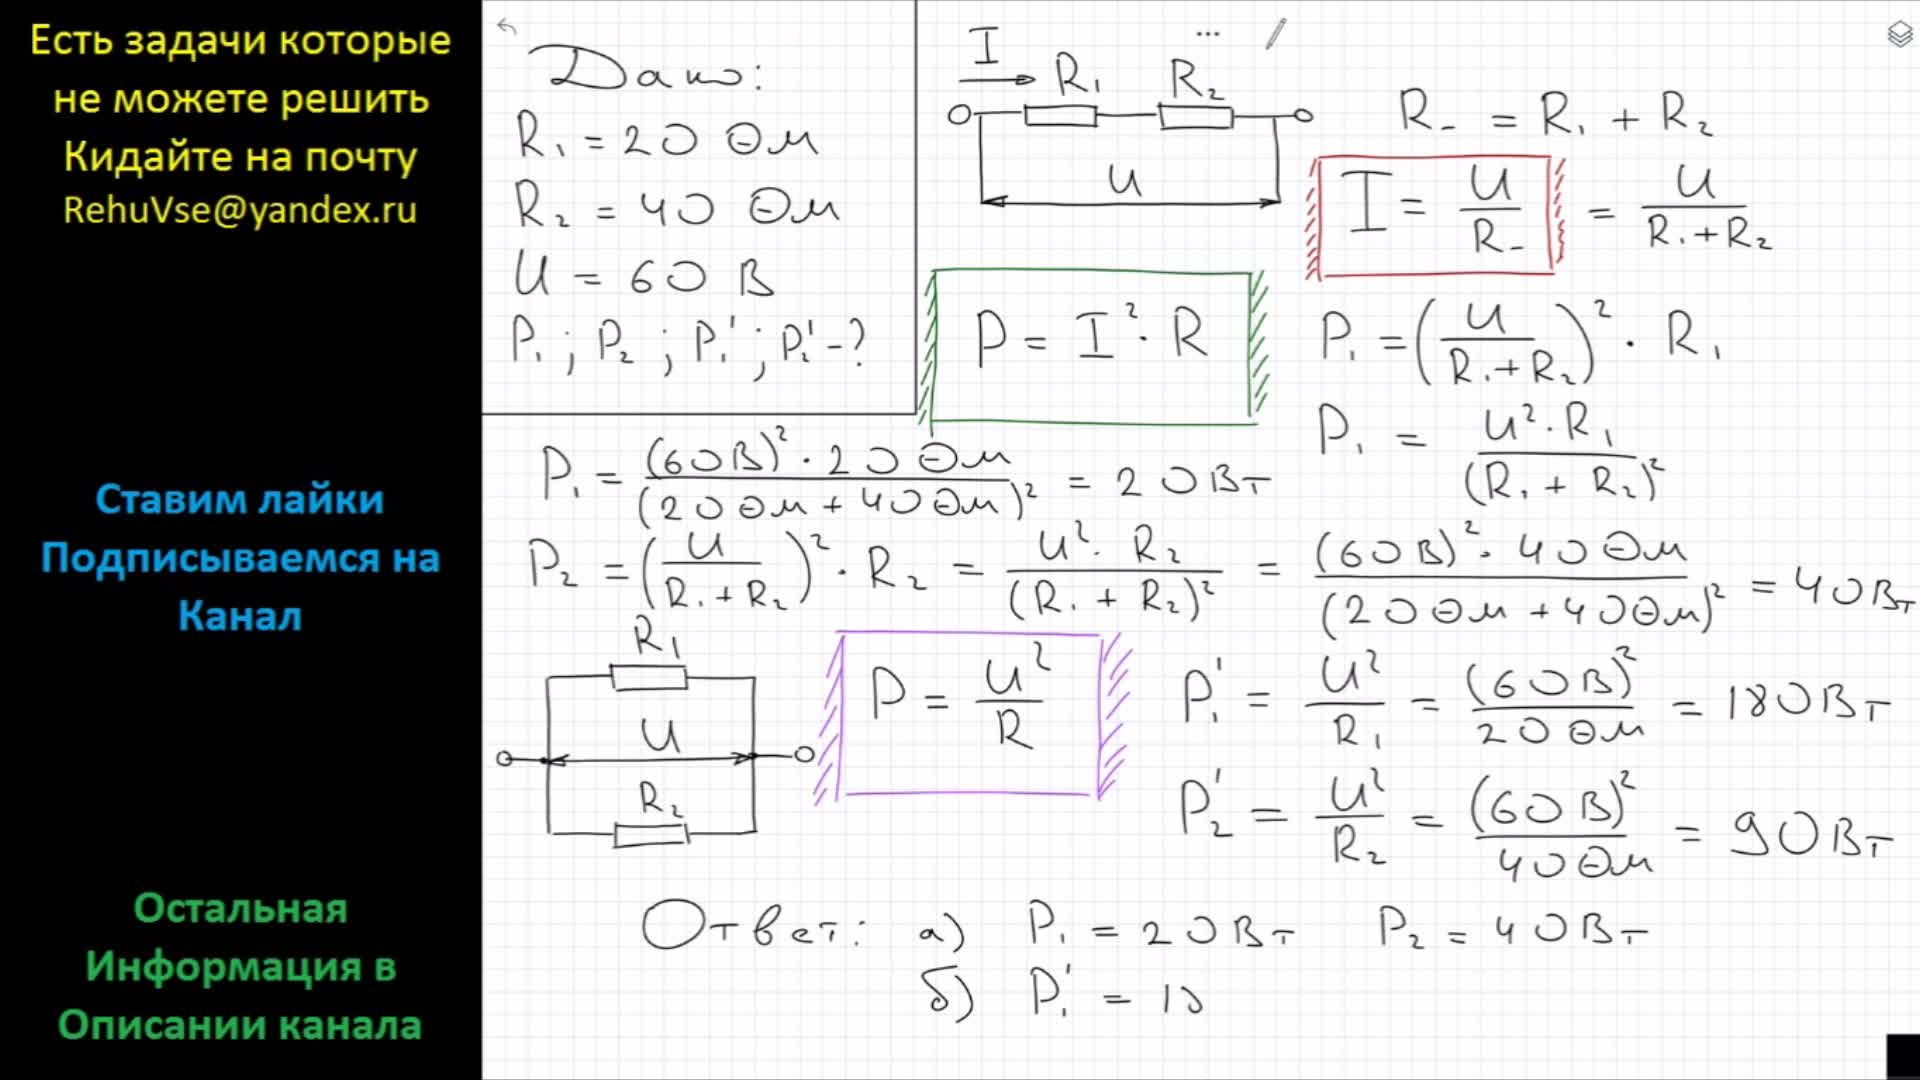 Есть задачи которые
не можете решить
Кидайте на почту
RehuVse@yandex.ru
Ставим лайки
Подписываемся на
Канал
Остальная
Информация в
Описании канала
Дано:
R₁ = 20 Ом
R₂ = 40 Ом
U = 60 В
P₁ ; P₂ ; P₁' ; P₂' - ?
I
R₁ R₂
U
R₋ = R₁ + R₂
I = U/R₋ = U/(R₁+R₂)
P = I² · R
P₁ = (U/(R₁+R₂))² · R₁
P₁ = U²·R₁/(R₁ + R₂)²
P₁ = (60В)² · 20 Ом/(20 Ом + 40 Ом)² = 20 Вт
P₂ = (U/(R₁+R₂))² · R₂ = U² · R₂/(R₁ + R₂)² = (60В)² · 40 Ом/(20 Ом + 40 Ом)² = 40 Вт
R₁
U
R₂
P = U²/R
P₁' = U²/R₁ = (60В)²/20 Ом = 180 Вт
P₂' = U²/R₂ = (60 В)²/40 Ом = 90 Вт
Ответ: а) P₁ = 20 Вт P₂ = 40 Вт
б) P₁' = 1